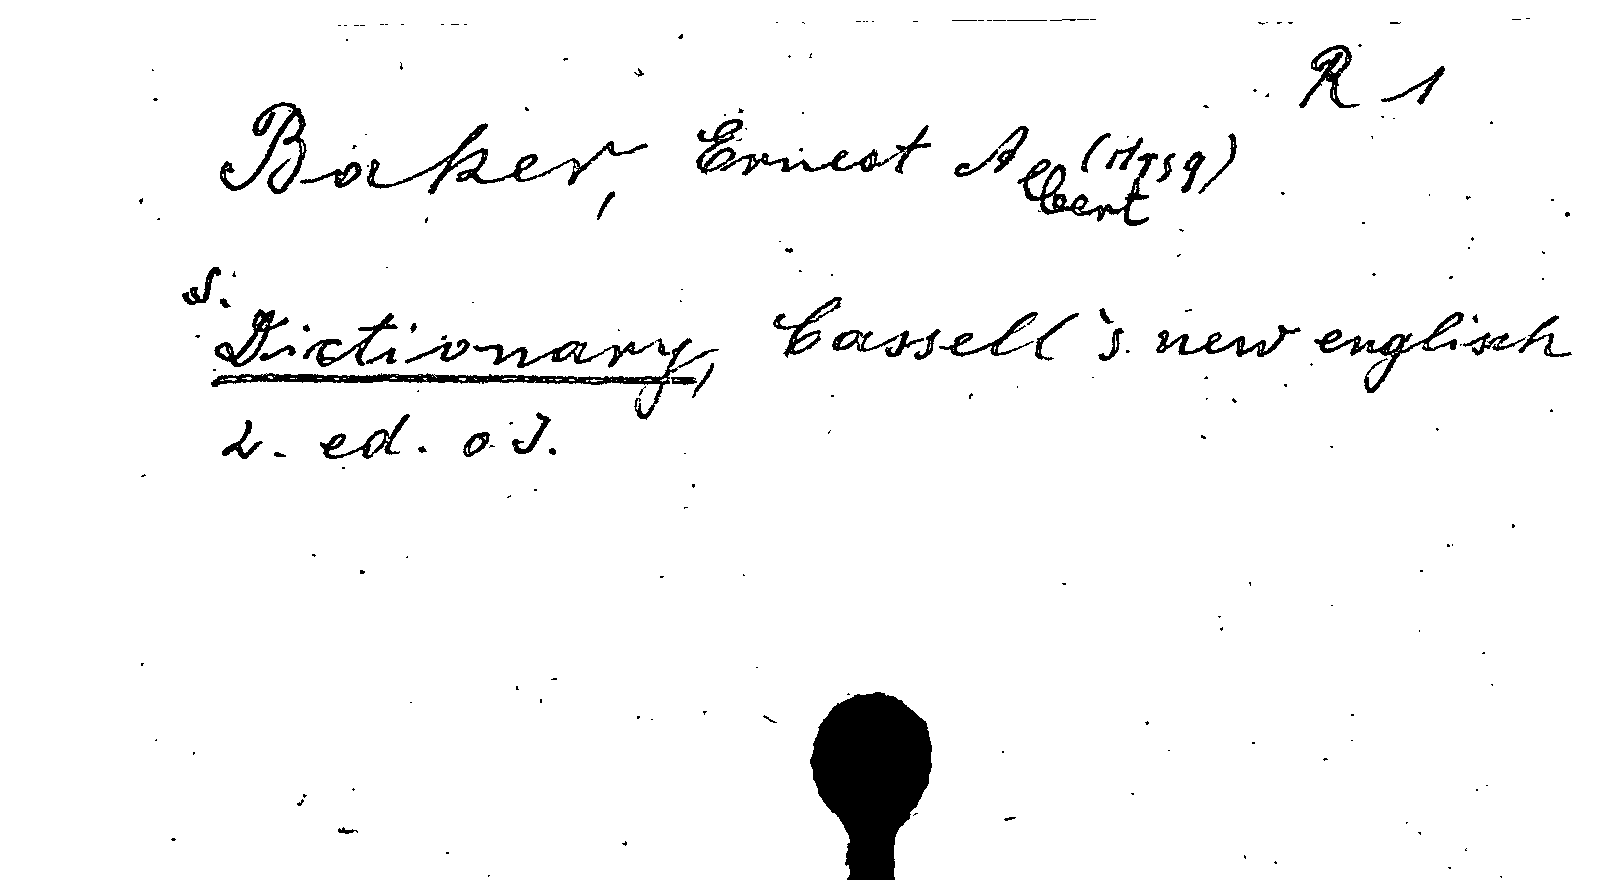 R 1
Baker, Ernest Albert (Hrsg)
s.
Dictionary, Cassell's new englisch
2. ed. o J.